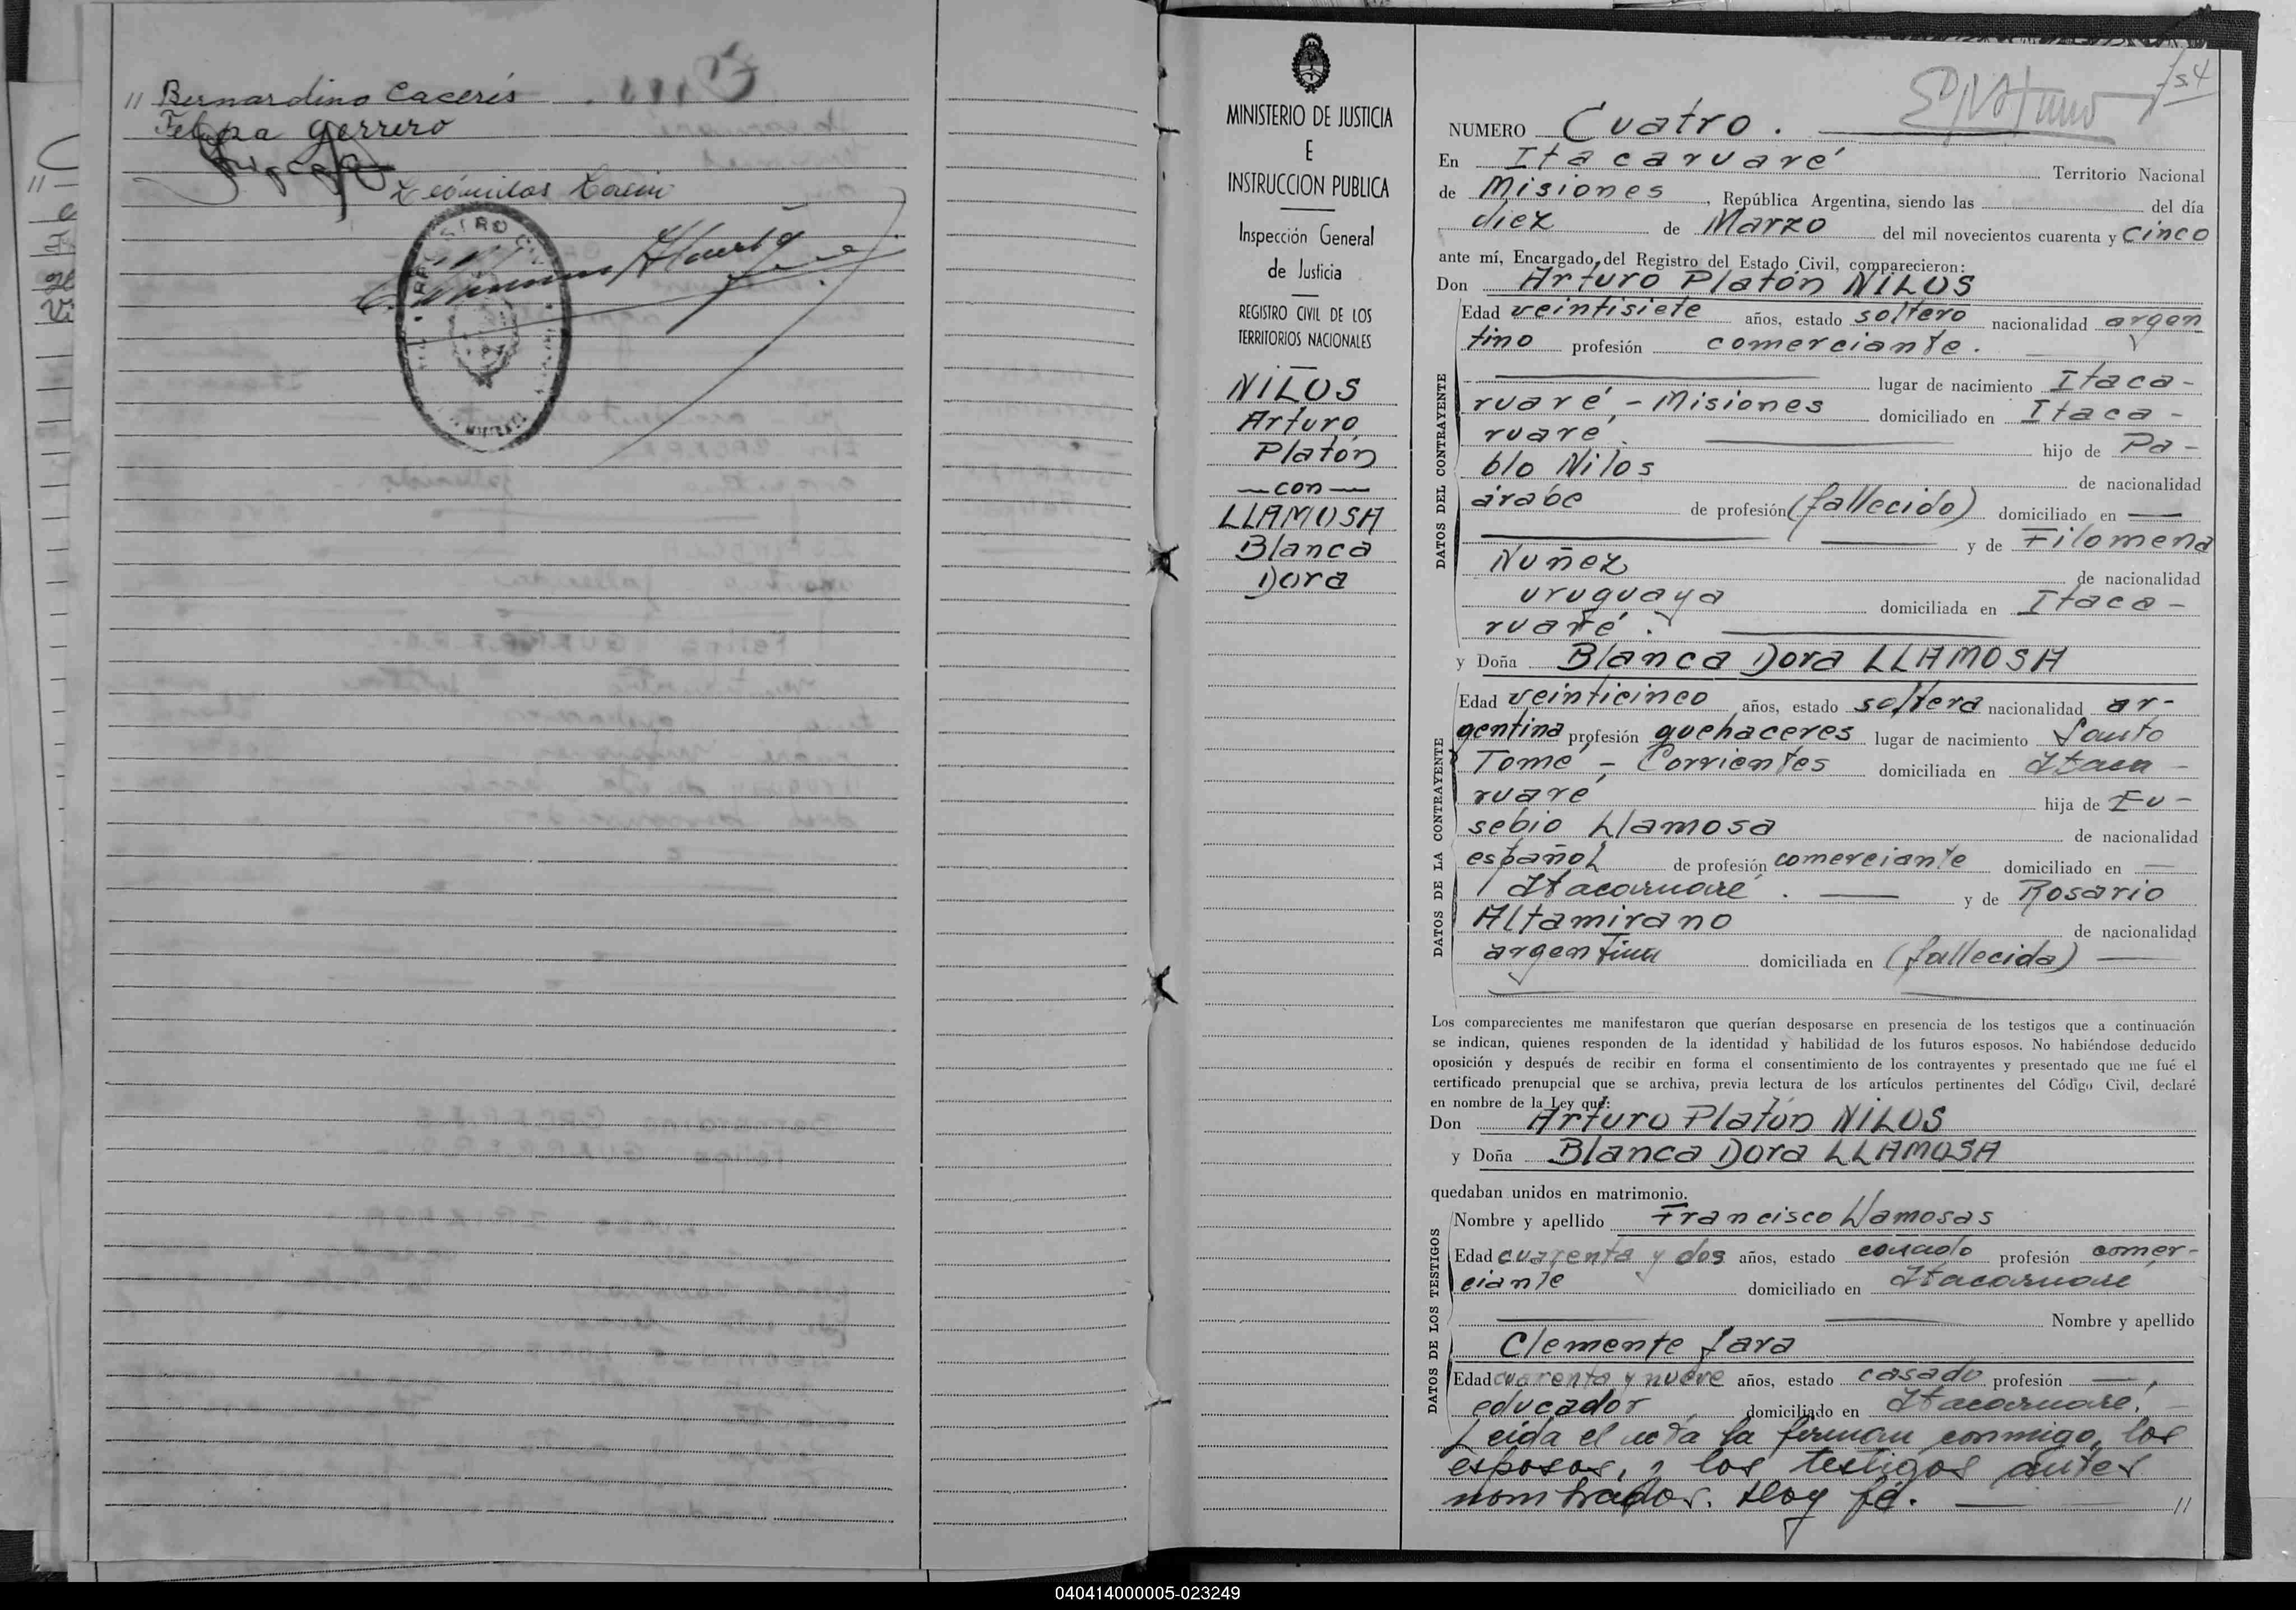 " Bernardino Caceris
Felipa Gerrero
REGISTRO CIVIL
MINISTERIO DE JUSTICIA
E
INSTRUCCION PUBLICA
Inspección General
de Justicia
REGISTRO CIVIL DE LOS
TERRITORIOS NACIONALES
NILUS
Arturo
Platón
— con —
LLAMOSA
Blanca
Dora
NUMERO Cuatro.
En Itacaruaré Territorio Nacional
de Misiones, República Argentina, siendo las del día
diez de Marzo del mil novecientos cuarenta y cinco
ante mí, Encargado del Registro del Estado Civil, comparecieron:
Don Arturo Platón NILUS
DATOS DEL CONTRAYENTE
Edad veintisiete años, estado soltero nacionalidad argen
tino profesión comerciante.
lugar de nacimiento Itaca-
ruaré, - Misiones domiciliado en Itaca-
ruaré. hijo de Pa-
blo Nilos de nacionalidad
árabe de profesión (fallecido) domiciliado en —
y de Filomena
Nuñez de nacionalidad
uruguaya domiciliada en Itaca-
ruaré.
y Doña Blanca Dora LLAMOSA
DATOS DE LA CONTRAYENTE
Edad veinticinco años, estado soltera nacionalidad ar-
gentina profesión quehaceres lugar de nacimiento Santo
Tomé, - Corrientes domiciliada en Itaca-
ruaré hija de Eu-
sebio Llamosa de nacionalidad
español de profesión comerciante domiciliado en —
Itacaruaré. y de Rosario
Altamirano de nacionalidad
argentina domiciliada en (fallecida) —
Los comparecientes me manifestaron que querían desposarse en presencia de los testigos que a continuación
se indican, quienes responden de la identidad y habilidad de los futuros esposos. No habiéndose deducido
oposición y después de recibir en forma el consentimiento de los contrayentes y presentado que me fué el
certificado prenupcial que se archiva, previa lectura de los artículos pertinentes del Código Civil, declaré
en nombre de la Ley que:
Don Arturo Platón NILUS
y Doña Blanca Dora LLAMOSA
quedaban unidos en matrimonio.
DATOS DE LOS TESTIGOS
Nombre y apellido Francisco Llamosas
Edad cuarenta y dos años, estado casado profesión comer-
ciante domiciliado en Itacaruaré
Nombre y apellido
Clemente Jara
Edad cuarenta y nueve años, estado casado profesión —,
educador domiciliado en Itacaruaré.
Leída el acta la firman conmigo, los
esposos, y los testigos antes
nombrados. Doy fé. — "
040414000005-023249